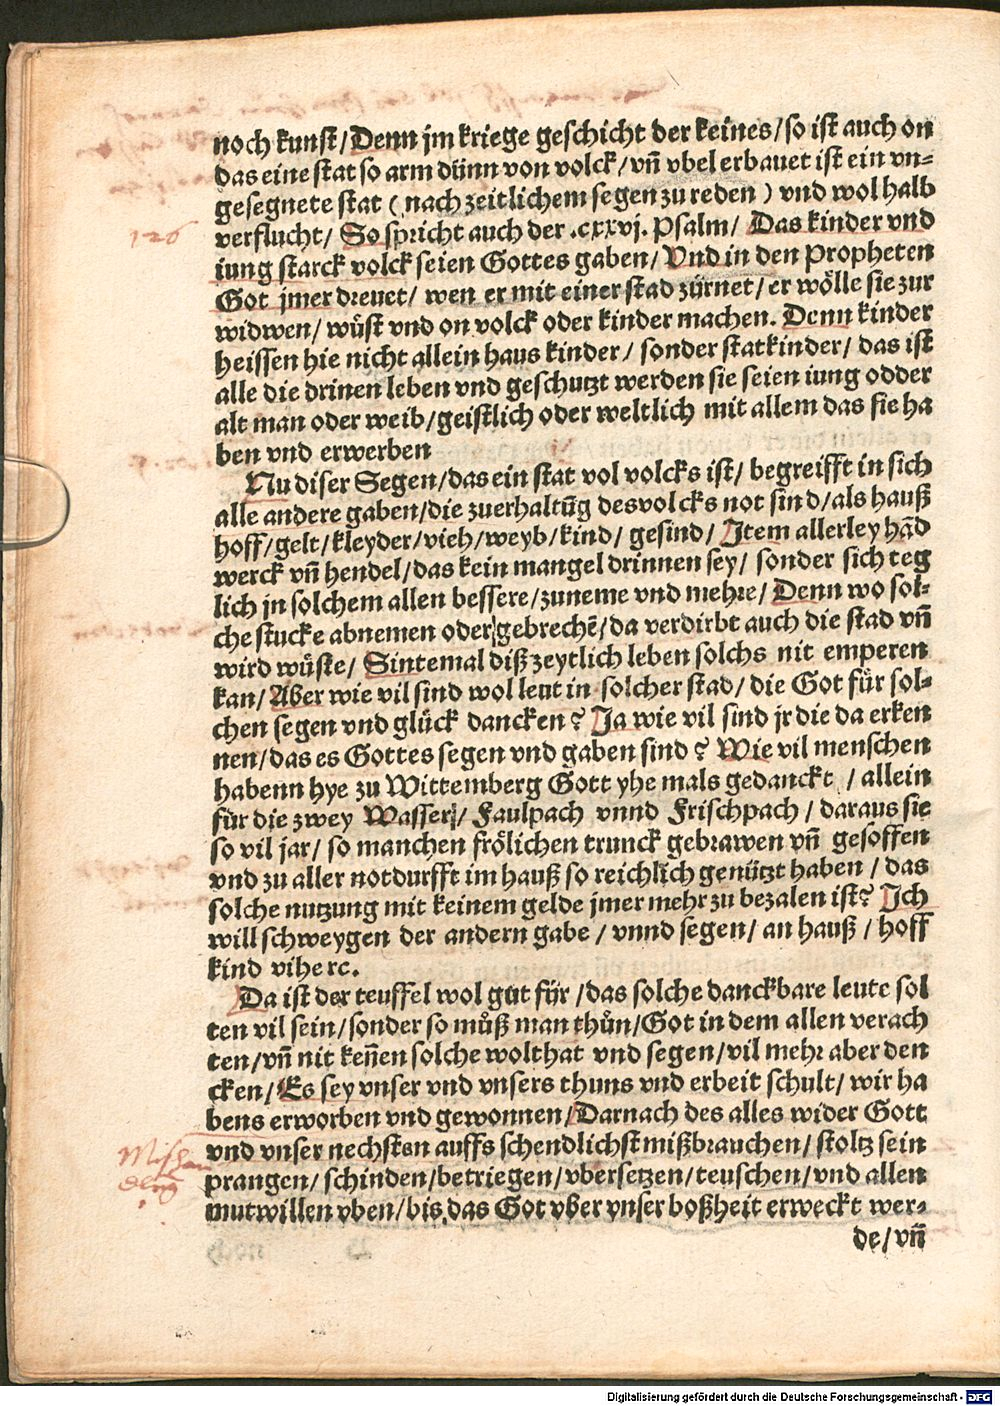 noch kunst/Denn jm kriege geschicht der keines/so ist auch on
das eine stat so arm dünn von volck/vñ vbel erbauet ist ein vn⸗
gesegnete stat (nach zeitlichem segen zu reden) vnd wol halb
126
verflucht/ So spricht auch der .cxxvj. Psalm/ Das kinder vnd
iung starck volck seien Gottes gaben/ Vnd in den Propheten
Got jmer drewet/ wen er mit einer stad zürnet/er wölle sie zur
widwen/ wüst vnd on volck oder kinder machen. Denn kinder
heissen hie nicht allein haus kinder/ sonder statkinder/ das ist
alle die drinen leben vnd geschutzt werden sie seien iung odder
alt man oder weib/geistlich oder weltlich mit allem das sie ha
ben vnd erwerben
Nu diser Segen/das ein stat vol volcks ist/ begreifft in sich
alle andere gaben/die zuerhaltũg desvolcks not sind/als hauß
hoff/gelt/kleyder/vieh/weyb/kind/ gesind/ Item allerley hãd
werck vñ hendel/das kein mangel drinnen sey/ sonder sich teg
lich jn solchem allen bessere/zuneme vnd mehre/Denn wo sol⸗
che stucke abnemen oder gebrechẽ/da verdirbt auch die stad vñ
wird wüste/ Sintemal diß zeytlich leben solchs nit emperen
kan/ Aber wie vil sind wol leut in solcher stad/ die Got für sol⸗
chen segen vnd glück dancken? Ja wie vil sind jr die da erken
nen/das es Gottes segen vnd gaben sind? Wie vil menschen
habenn hye zu Wittemberg Gott yhe mals gedanckt / allein
für die zwey Wasser/ Faulpach vnnd Frischpach / daraus sie
so vil jar/ so manchen frölichen trunck gebrawen vñ gesoffen
vnd zu aller notdurfft im hauß so reichlich genützt haben / das
solche nutzung mit keinem gelde jmer mehr zu bezalen ist? Ich
will schweygen der andern gabe / vnnd segen/ an hauß / hoff
kind vihe ꝛc.
Da ist der teuffel wol gut für /das solche danckbare leute sol
ten vil sein/sonder so můß man thůn/Got in dem allen verach
ten/vñ nit keñen solche wolthat vnd segen/vil mehr aber den
cken/Es sey vnser vnd vnsers thuns vnd erbeit schult/ wir ha
bens erworben vnd gewonnen/Darnach des alles wider Gott
vnd vnser nechsten auffs schendlichst mißbrauchen/ stoltz sein
prangen/ schinden/betriegen/ vbersetzen/teuschen/vnd allen
mutwillen vben/bis das Got vber vnser boßheit erweckt wer⸗
de/vñ
Digitalisierung gefördert durch die Deutsche Forschungsgemeinschaft - DFG